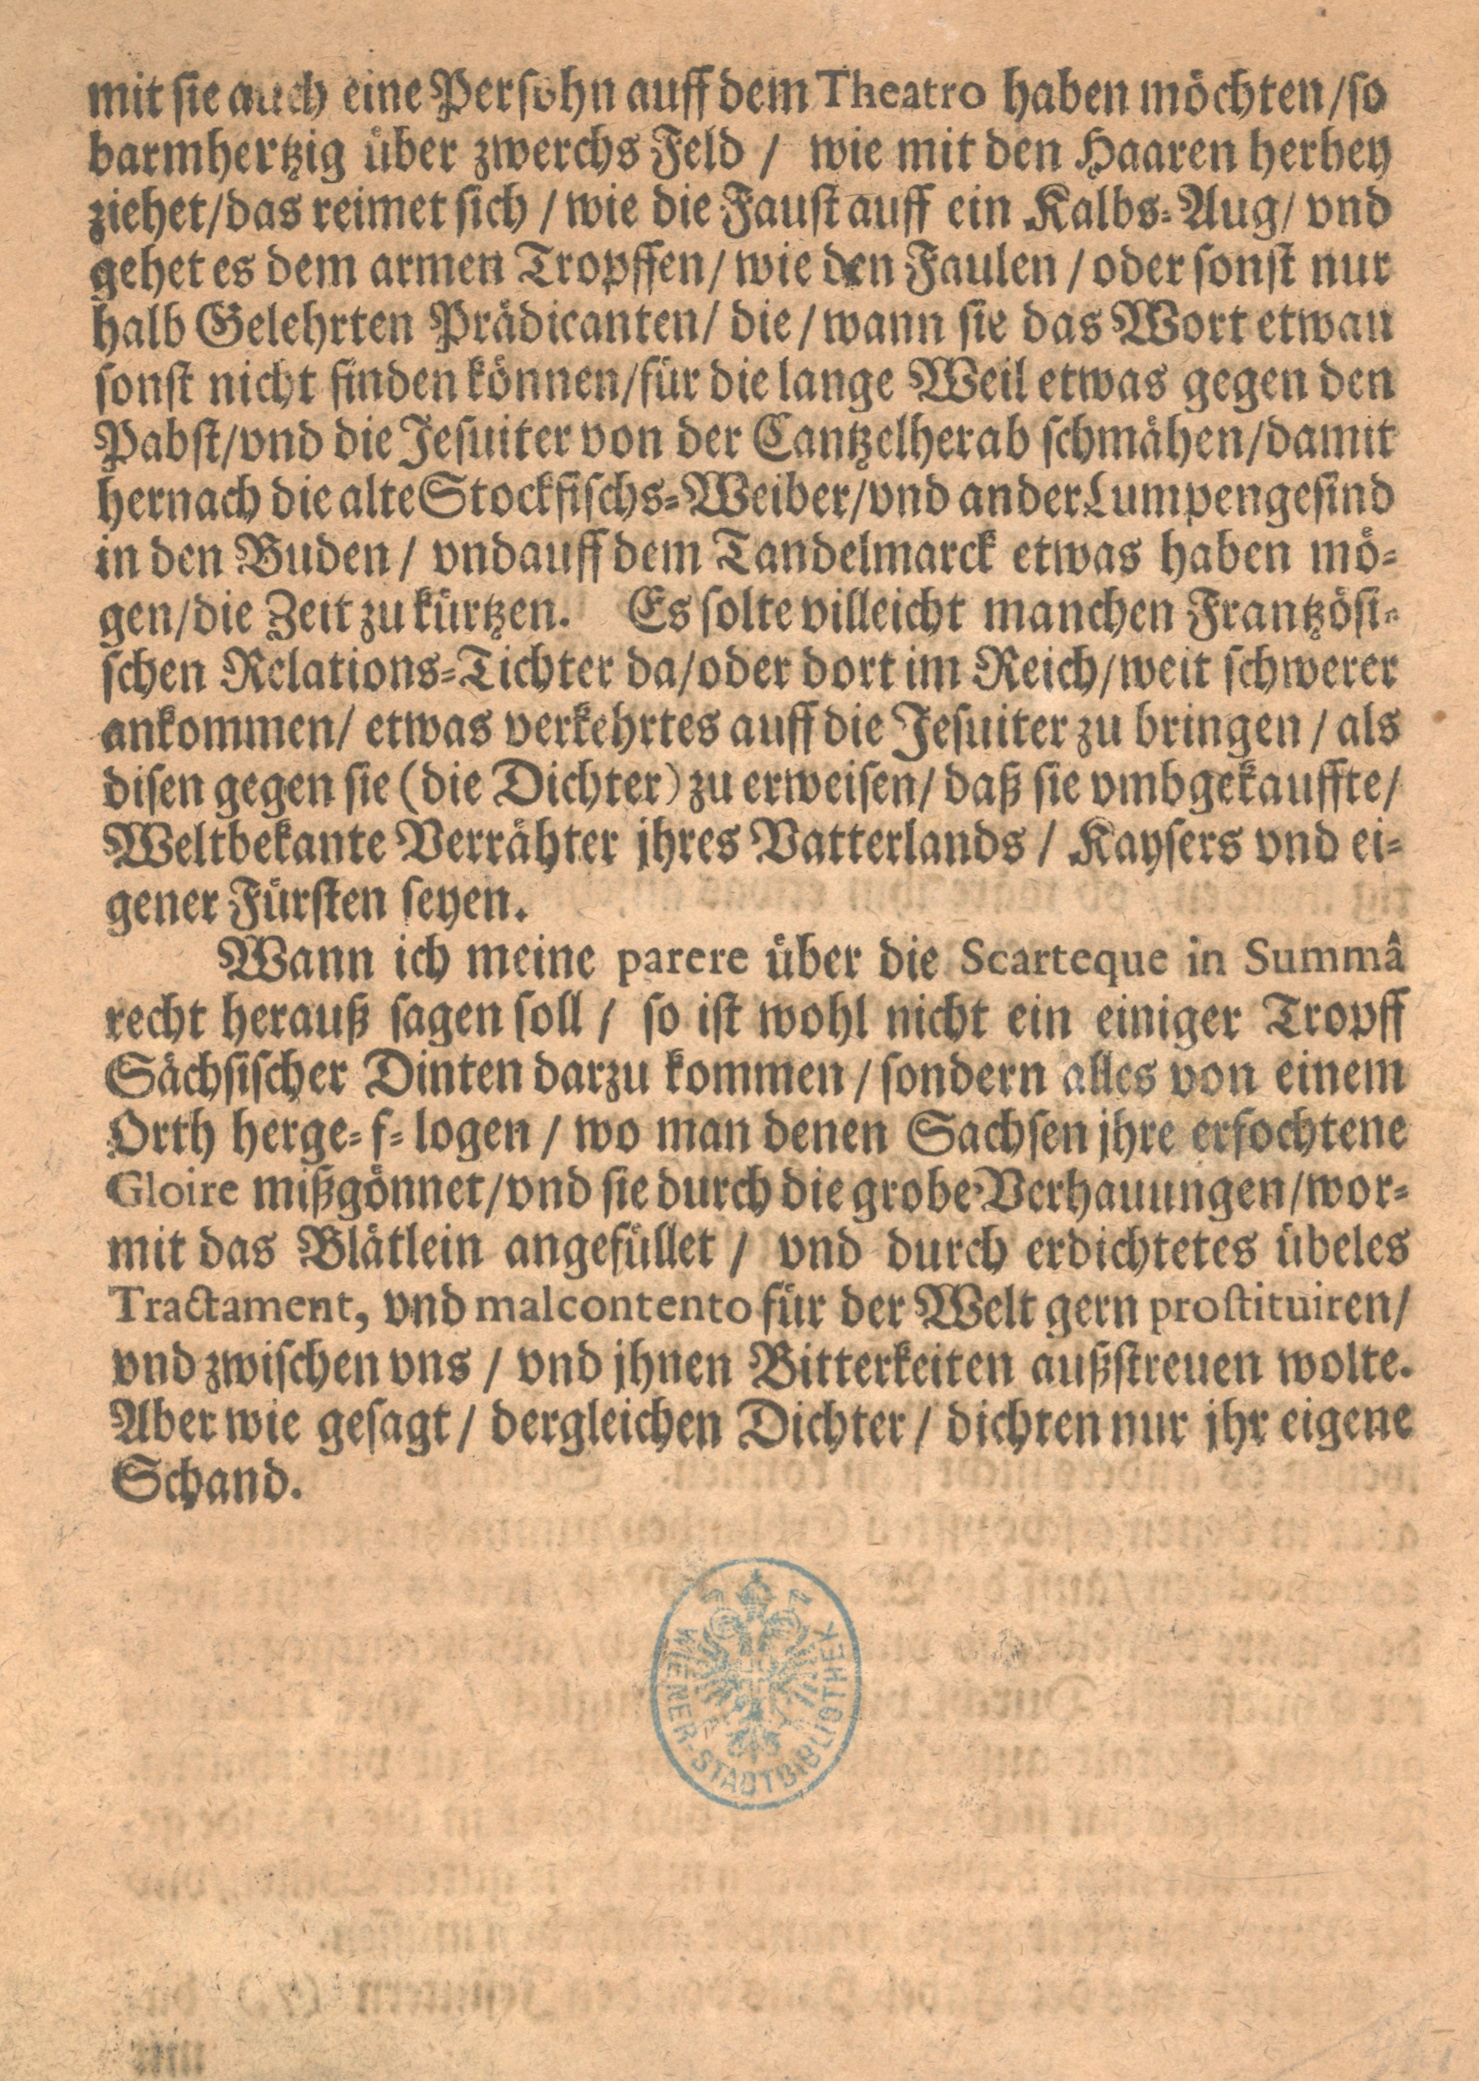 mit sie auch eine Persohn auff dem Theatro haben möchten/so
barmhertzig über zwerchs Feld / wie mit den Haaren herbey
ziehet/das reimet sich / wie die Faust auff ein Kalbs-Aug/ vnd
gehet es dem armen Tropffen/ wie den Faulen / oder sonst nur
halb Gelehrten Prädicanten/ die / wann sie das Wort etwan
sonst nicht finden können/für die lange Weil etwas gegen den
Pabst/vnd die Jesuiter von der Cantzelherab schmähen/damit
hernach die alte Stockfischs-Weiber/vnd ander Lumpengesind
in den Buden / vndauff dem Tandelmarck etwas haben mö-
gen/die Zeit zu kürtzen. Es solte villeicht manchen Frantzösi-
schen Relations-Tichter da/oder dort im Reich/weit schwerer
ankommen/ etwas verkehrtes auff die Jesuiter zu bringen / als
disen gegen sie (die Dichter) zu erweisen/ daß sie vmbgekauffte/
Weltbekante Verrähter jhres Vatterlands / Kaysers vnd ei-
gener Fürsten seyen.
Wann ich meine parere über die Scarteque in Summâ
recht herauß sagen soll / so ist wohl nicht ein einiger Tropff
Sächsischer Dinten darzu kommen / sondern alles von einem
Orth herge-f-logen / wo man denen Sachsen jhre erfochtene
Gloire mißgönnet/vnd sie durch die grobe Verhauungen/wor-
mit das Blätlein angefüllet / vnd durch erdichtetes übeles
Tractament, vnd malcontento für der Welt gern prostituiren/
vnd zwischen vns / vnd jhnen Bitterkeiten außstreuen wolte.
Aber wie gesagt / dergleichen Dichter / dichten nur jhr eigene
Schand.
WIENER-STADTBIBLIOTHEK